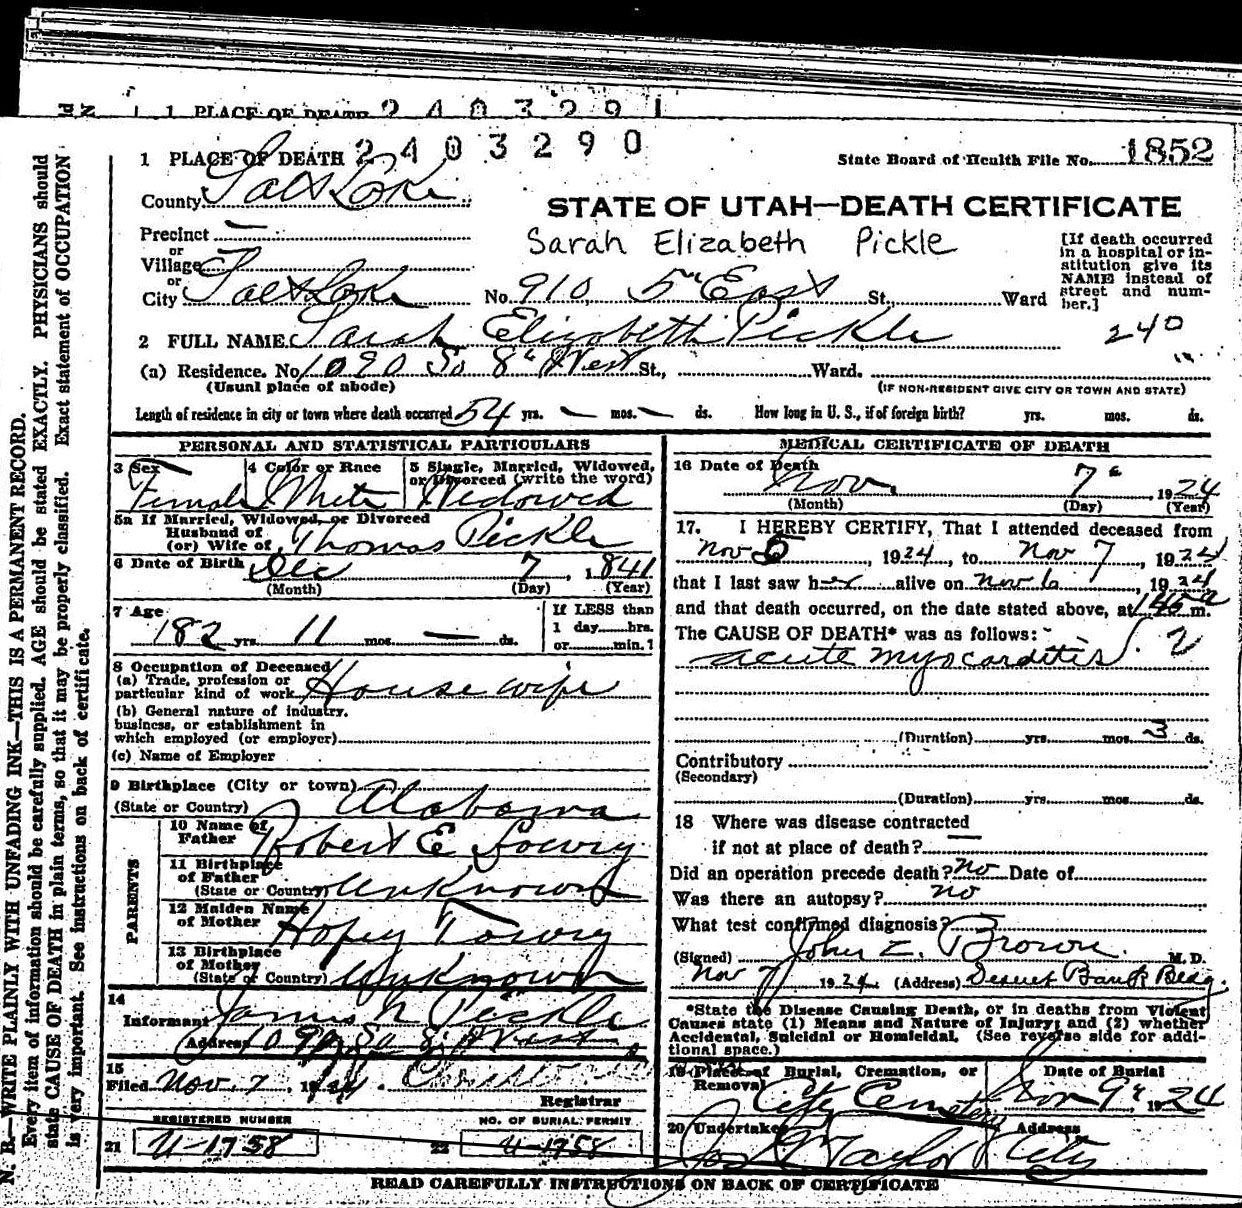 1 PLACE OF DEATH 2 4 0 3 2 9 1
1 PLACE OF DEATH 2 4 0 3 2 9 0
State Board of Health File No. 1852
County Salt Lake
STATE OF UTAH—DEATH CERTIFICATE
Precinct —
or
Village
or
City Salt Lake
Sarah Elizabeth Pickle
No. 910 5" East St., Ward
[If death occurred in a hospital or institution give its NAME instead of street and number.]
240
2 FULL NAME Sarah Elizabeth Pickle
(a) Residence. No. 1090 So 8" West St., Ward.
(Usual place of abode)
(IF NON-RESIDENT GIVE CITY OR TOWN AND STATE)
Length of residence in city or town where death occurred 54 yrs. — mos. — ds. How long in U. S., if of foreign birth? yrs. mos. ds.
PERSONAL AND STATISTICAL PARTICULARS
3 Sex
Female
4 Color or Race
White
5 Single, Married, Widowed, or Divorced (write the word)
Widowed
5a If Married, Widowed, or Divorced
Husband of
(or) Wife of Thomas Pickle
6 Date of Birth Dec 7, 1841
(Month) (Day) (Year)
7 Age
82 yrs. 11 mos. — ds.
If LESS than
1 day hrs.
or min.?
8 Occupation of Deceased
(a) Trade, profession or
particular kind of work Housewife
(b) General nature of industry,
business, or establishment in
which employed (or employer)
(c) Name of Employer
9 Birthplace (City or town)
(State or Country) Alabama
PARENTS
10 Name of
Father Robert E Lowry
11 Birthplace
of Father
(State or Country) Unknown
12 Maiden Name
of Mother Hopey Towry
13 Birthplace
of Mother
(State or Country) Unknown
14
Informant James N Pickle
Address 1090 So 8 West
15
Filed Nov. 7, 1924
Registrar
REGISTERED NUMBER
21 U-1758
NO. OF BURIAL PERMIT
22 U-1758
MEDICAL CERTIFICATE OF DEATH
16 Date of Death
Nov. 7", 1924
(Month) (Day) (Year)
17. I HEREBY CERTIFY, That I attended deceased from
Nov 5, 1924, to Nov 7, 1924
that I last saw her alive on Nov 6, 1924
and that death occurred, on the date stated above, at 1 45 a m.
The CAUSE OF DEATH* was as follows:
acute myocarditis. 2
(Duration) yrs. mos. 3 ds.
Contributory
(Secondary)
(Duration) yrs. mos. ds.
18 Where was disease contracted
if not at place of death?
Did an operation precede death? No Date of
Was there an autopsy? no
What test confirmed diagnosis?
(Signed) John Z. Brown M. D.
Nov 7 1924 (Address) Deseret Bank Bldg.
*State the Disease Causing Death, or in deaths from Violent
Causes state (1) Means and Nature of Injury; and (2) whether
Accidental, Suicidal or Homicidal. (See reverse side for additional space.)
19 Place of Burial, Cremation, or
Removal
City Cemetery
Date of Burial
Nov 9" 1924
20 Undertaker
Taylor
Address
City
READ CAREFULLY INSTRUCTIONS ON BACK OF CERTIFICATE
N. B.—WRITE PLAINLY WITH UNFADING INK—THIS IS A PERMANENT RECORD.
Every item of information should be carefully supplied. AGE should be stated EXACTLY. PHYSICIANS should
state CAUSE OF DEATH in plain terms, so that it may be properly classified. Exact statement of OCCUPATION
is very important. See instructions on back of certificate.